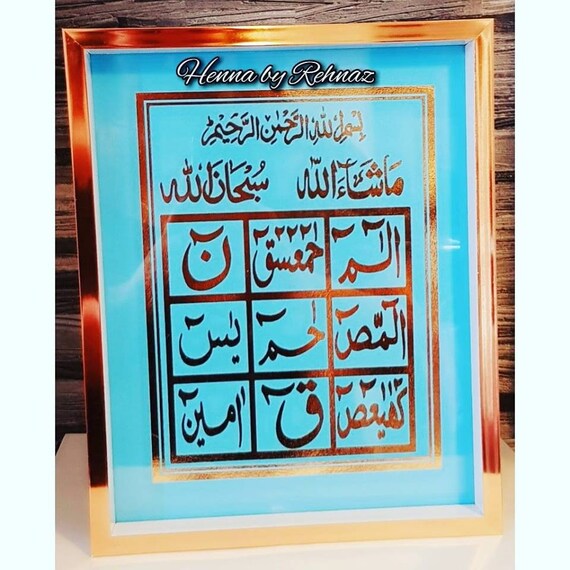 Henna by Rehnaz
بِسْمِ اللهِ الرَّحْمٰنِ الرَّحِيْمِ
مَا شَآءَ اللّٰه سُبْحَانَ اللّٰه
الٓمٓ حٰمٓعٓسٓقٓ نٓ
الٓمّٓصٓ لحٰمٓ يٰسٓ
كٓهٰيٰعٓصٓ قٓ اٰمين